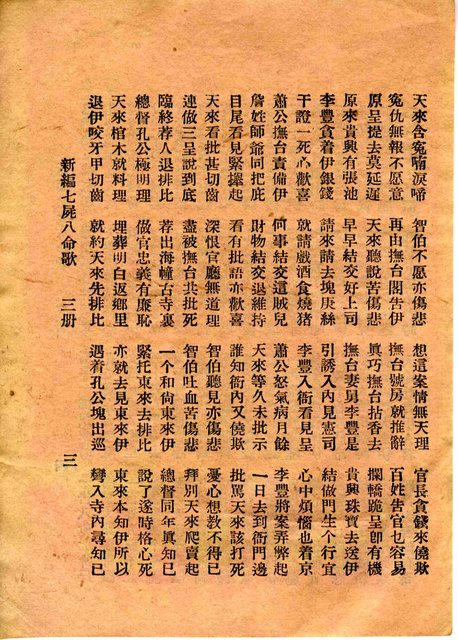 天來含寃喃淚啼 智伯不愿亦傷悲 想這案情無天理 官長貪錢來僥欺
寃仇無報不愿意 再由撫台閣告伊 撫台號房就推辭 百姓告官乜容易
原呈提去莫延遲 天來聽說苦傷悲 真巧撫台拈香去 攔轎跪呈卽有機
原來貴興有張池 早早結交好上司 撫台妻舅李豐是 貴興珠寶去送伊
李豐貪着伊銀錢 請來請去塊庚絲 引誘入內見憲司 結做門生个行宜
干證一死心歡喜 就請戲酒食燒猪 李豐入衙看見呈 心中煩惱也着京
蕭公撫台責備伊 何事結交這賊兒 蕭公怒氣病月餘 李豐將案弄弊起
詹姓師爺同把庇 財物結交退維持 天來等久未批示 一日去到衙門邊
目尾看見緊起 看有批語亦歡喜 誰知衙內又僥欺 批罵天來該打死
天來看批甚切齒 深恨官廳無道理 智伯聽見亦傷悲 憂心想教不得已
連做三呈說到底 盡被撫台共批死 智伯吐血苦傷悲 拜別天來爬賣起
臨終荐人退排比 荐出海幢古寺裏 一个和尚東來伊 總督同年眞知已
總督孔公極明理 做官忠義有廉恥 緊托東來去排比 說了遂時格心死
天來棺木就料理 埋葬明白返鄉里 亦就去見東來伊 東來本知伊所以
退伊咬牙甲切齒 就約天來先排比 遇着孔公塊出巡 彎入寺內尋知已
新編七屍八命歌 三册 三